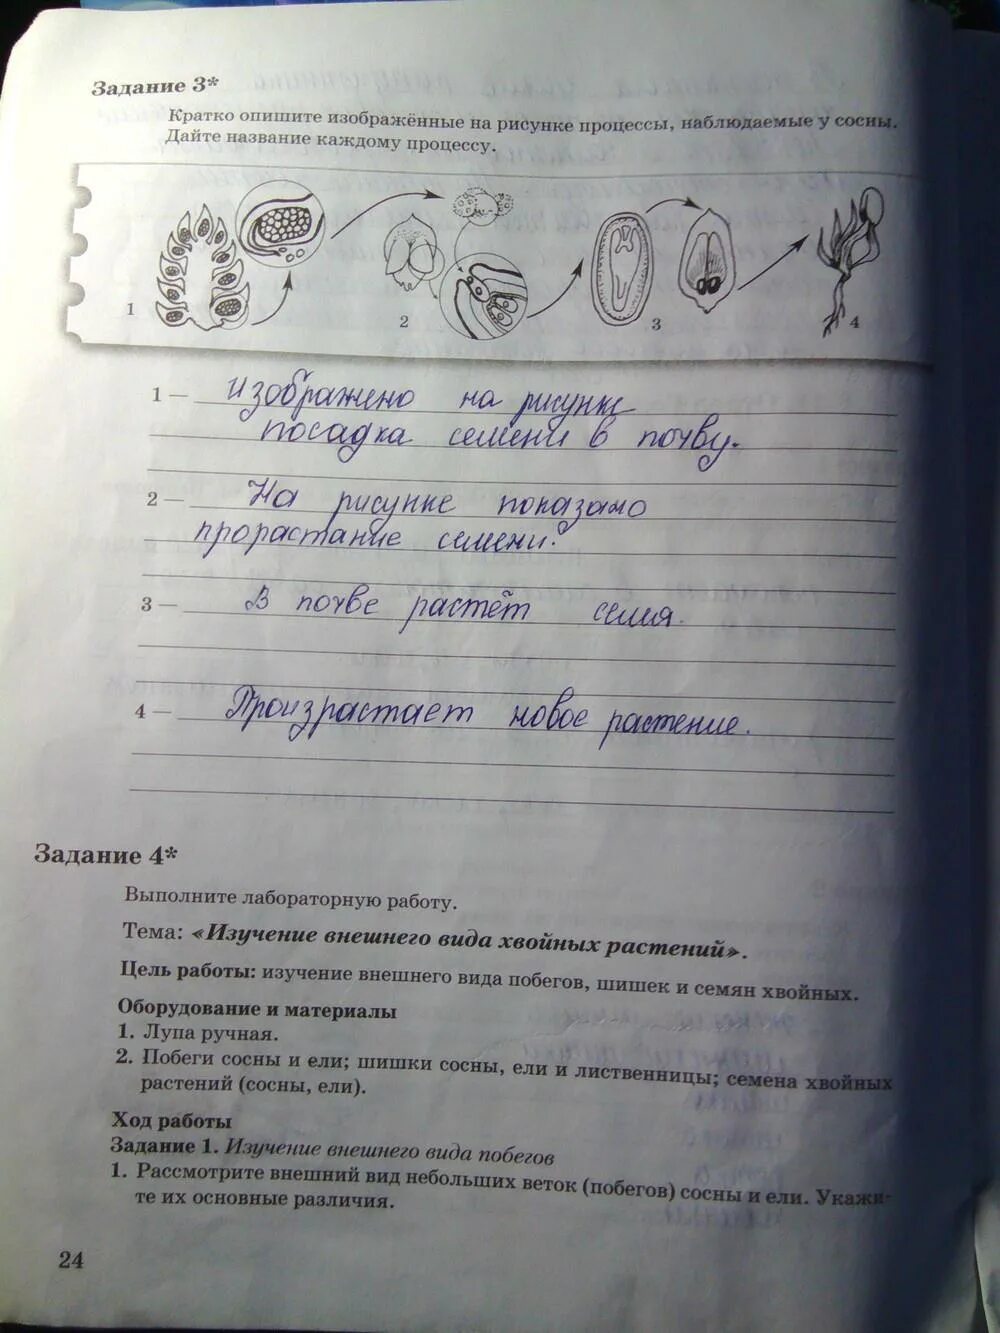 Задание 3*
Кратко опишите изображённые на рисунке процессы, наблюдаемые у сосны.
Дайте название каждому процессу.
1
2
3
4
1 — Изображено на рисунке
посадка семени в почву.
2 — На рисунке показано
прорастание семени.
3 — В почве растёт семя.
4 — Произрастает новое растение.
Задание 4*
Выполните лабораторную работу.
Тема: «Изучение внешнего вида хвойных растений».
Цель работы: изучение внешнего вида побегов, шишек и семян хвойных.
Оборудование и материалы
1. Лупа ручная.
2. Побеги сосны и ели; шишки сосны, ели и лиственницы; семена хвойных
растений (сосны, ели).
Ход работы
Задание 1. Изучение внешнего вида побегов
1. Рассмотрите внешний вид небольших веток (побегов) сосны и ели. Укажи-
те их основные различия.
24